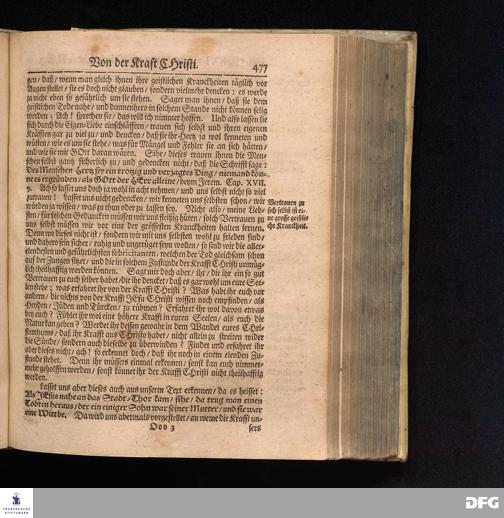 Von der Krafft CHristi. 477
gen / daß / wenn man gleich ihnen ihre geistlichen Kranckheiten täglich vor
Augen stellet / sie es doch nicht glauben / sondern vielmehr dencken : es werde
ja nicht eben so gefährlich um sie stehen. Saget man ihnen / daß sie dem
geistlichen Tode nahe / und dannenhero in solchem Stande nicht können selig
werden ; Ach ! sprechen sie / das will ich nimmer hoffen. Und also lassen sie
sich durch die Eigen-Liebe einschläffern / trauen sich selbst und ihren eigenen
Kräfften gar zu viel zu / und dencken / daß sie ihr Hertz ja wol kenneten und
wüsten / wie es um sie stehe / was für Mängel und Fehler sie an sich hätten /
und wie sie mit GOtt daran wären. Sihe / dieses trauen ihnen die Men-
schen selbst gantz sicherlich zu / und gedencken nicht / daß die Schrifft sage :
Des Menschen Hertz sey ein trotzig und verzagtes Ding / niemand kön-
ne es ergründen / als GOtt der HErr alleine / beym Jerem. Cap. XVII,
9. Ach so lasset uns doch ja wohl in acht nehmen / und uns selbst nicht so viel
zutrauen ! Lasset uns nicht gedencken / wir kenneten uns selbsten schon / wir
würden ja wissen / was zu thun oder zu lassen sey. Nicht also / meine Lieb-
sten / für solchen Gedancken müssen wir uns fleißig hüten / solch Vertrauen zu
uns selbst müssen wir vor eine der grössesten Kranckheiten halten lernen.
Denn wo dieses nicht ist / sondern wir mit uns selbsten wohl zu frieden sind /
und dahero sein sicher / ruhig und ungerüget seyn wollen / so sind wir die aller-
elendesten und gefährlichsten febricitanten, welchen der Tod gleichsam schon
auf der Zungen sitzet / und die in solchem Zustande der Krafft CHristi unmüg-
lich theilhafftig werden können. Sagt mir doch aber / ihr / die ihr ein so gut
Vertrauen zu euch selber habt / die ihr dencket / daß es gar wohl um eure See-
len stehe ; was erfahret ihr von der Krafft CHristi ? Was habt ihr euch vor
andern / die nichts von der Krafft JEsu CHristi wissen noch empfinden / als
Heyden / Jüden und Türcken / zu rühmen ? Erfahret ihr wol davon etwas
bey euch ? Fühlet ihr wol eine höhere Krafft in euren Seelen / als euch die
Natur kan geben ? Werdet ihr dessen gewahr in dem Wandel eures CHri-
stenthums / daß ihr Krafft aus CHristo habet / nicht allein zu streiten wider
die Sünde / sondern auch dieselbe zu überwinden ? Findet und erfahret ihr
aber dieses nicht / ach ! so erkennet doch / daß ihr noch in einem elenden Zu-
stande stehet. Denn ihr müssets einmal erkennen / sonst kan euch nimmer-
mehr geholffen werden / sonst könnet ihr der Krafft CHristi nicht theilhafftig
werden.
Lasset uns aber dieses auch aus unserm Text erkennen / da es heisset :
Als JEsus nahe an das Stadt-Thor kam / sihe / da trug man einen
Todten heraus / der ein einiger Sohn war seiner Mutter / und sie war
eine Witbe. Da wird uns abermals vorgestellet / an weme die Krafft un-
Ooo 3 sers
Vertrauen zu
sich selbst ist ei-
ne große geistli-
che Kranckheit.
FRANCKESCHE
STIFTUNGEN
DFG